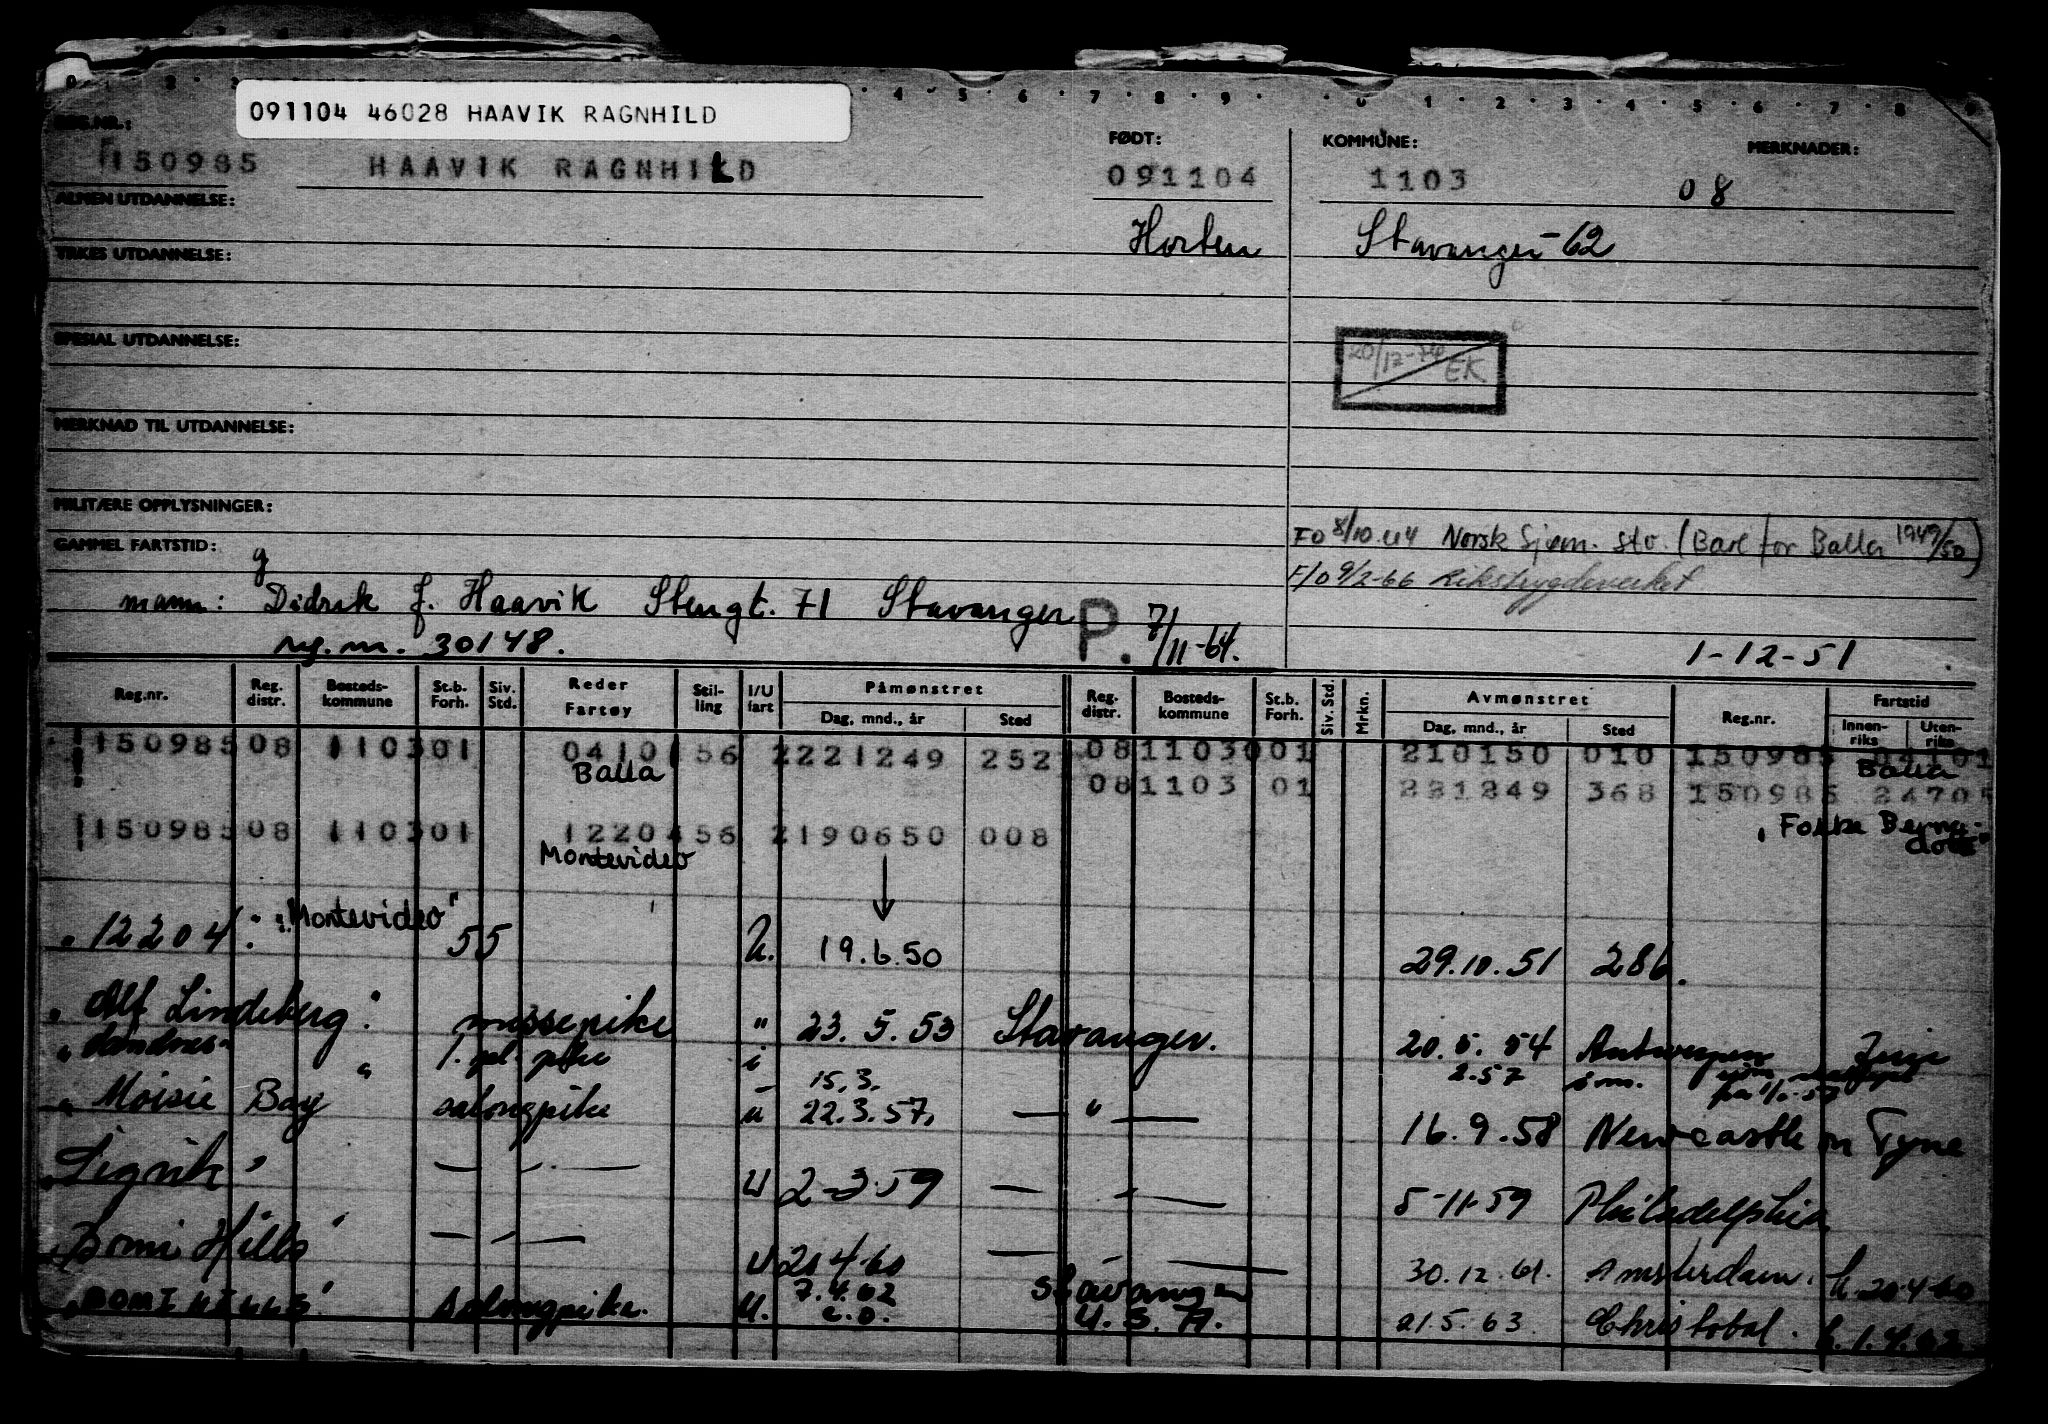 091104 46028 HAAVIK RAGNHILD
REG.NR.: FØDT: KOMMUNE: MERKNADER:
150985 HAAVIK RAGNHILD 091104 1103 08
ALMEN UTDANNELSE:
Horten Stavanger -62
YRKES UTDANNELSE:
SPESIAL UTDANNELSE:
20/12-74 EK
MERKNAD TIL UTDANNELSE:
MILITÆRE OPPLYSNINGER:
FO 8/10.44 Norsk Sjøm. stv. (Bare for Balla 1949/50)
GAMMEL FARTSTID:
F/O 9/2-66 Rikstrygdeverket
mann: Didrik J. Haavik Stengt. 71 Stavanger P. 7/11-64.
reg. nr. 30148. 1-12-51
Reg.nr. Reg. distr. Bosteds-kommune St.b. Forh. Siv. Std. Reder Fartøy Stil-ling I/U fart Påmønstret Dag, mnd., år Sted Reg. distr. Bosteds-kommune St.b. Forh. Siv. Std. Mrkn. Avmønstret Dag, mnd., år Sted Reg.nr. Fartstid Innen-riks Uten-riks
150985 08 1103 01 04101 56 2 221249 252 08 1103 001 210150 010 150985 04101
Balla Balla
08 1103 01 221249 368 150985 24705
150985 08 1103 01 12204 56 2 190650 008 "Folke Berna-
Montevideo dotte"
12204: "Montevideo" 55 U. 19.6.50 29.10.51 286.
"Alf Lindeberg" messepike " 23.5.53 Stavanger. 20.5.54 Antwerpen
"Sandnes" 1. pl. pike i 15.3. 2.57
"Moisie Bay" salongpike u 22.3.57, — " — 16.9.58 Newcastle on Tyne
Sigvik " — " — U 2-3-59 — " — 5-11-59 Philadelphia
"Bomi Hills" — " — U 20.4.60 — " — 30.12.61. Amsterdam. h 20.4.60
"BOMI HILLS" Salongpike. U. 7.4.62 Stavanger 21.5.63 Christobal. h. 1.4.62